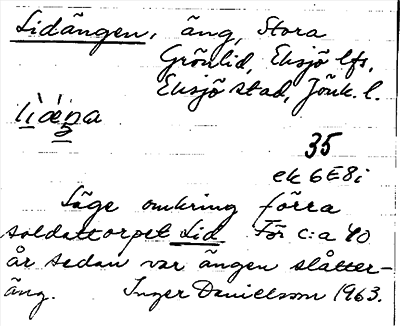 Lidängen, äng, Stora
Grönlid, Eksjö lfs,
Eksjö stad, Jönk. l.
35
ek 6E8i
Läge omkring förra
soldattorpet Lid För c:a 40
år sedan var ängen slåtter-
äng. Inger Danielsson 1963.